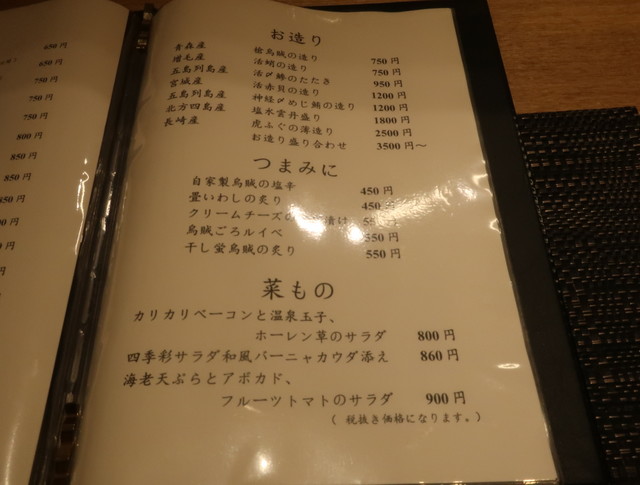 650円
650円
750円
750円
750円
800円
850円
850円
850円
お造り
青森産 槍烏賊の造り 750円
増毛産 活蛸の造り 750円
五島列島産 活〆鯵のたたき 950円
宮城産 活赤貝の造り 1200円
五島列島産 神経〆めじ鮪の造り 1200円
北方四島産 塩水雲丹盛り 1800円
長崎産 虎ふぐの薄造り 2500円
お造り盛り合わせ 3500円〜
つまみに
自家製烏賊の塩辛 450円
畳いわしの炙り 450円
クリームチーズの 漬け
烏賊ごろルイベ 550円
干し蛍烏賊の炙り 550円
菜もの
カリカリベーコンと温泉玉子、
ホーレン草のサラダ 800円
四季彩サラダ和風バーニャカウダ添え 860円
海老天ぷらとアボカド、
フルーツトマトのサラダ 900円
（税抜き価格になります。）